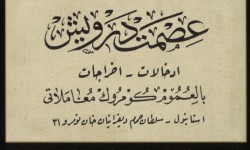 عصمت درويش
ادخالات - اخراجات
بالعموم كومروك معاملاتى
استانبول - سلطان حمام ديقرانيان خان نومرو ٣١